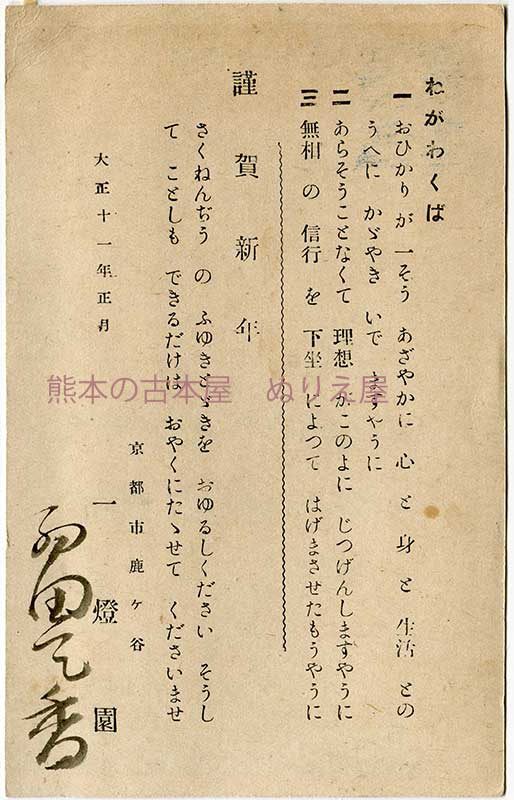 ねがわくば
一 おひかり が 一そう あざやかに 心 と 身 と 生活 との
うへに かゞやき いで ますやうに
二 あらそうことなくて 理想 がこのよに じつげんしますやうに
三 無相 の 信行 を 下坐 によつて はげまさせたもうやうに
謹賀新年
さくねんぢう の ふゆきとゞきを おゆるしください そうし
て ことしも できるだけは おやくにたゝせて くださいませ
大正十一年正月
京都市鹿ヶ谷
一燈園
西田天香
熊本の古本屋 ぬりえ屋